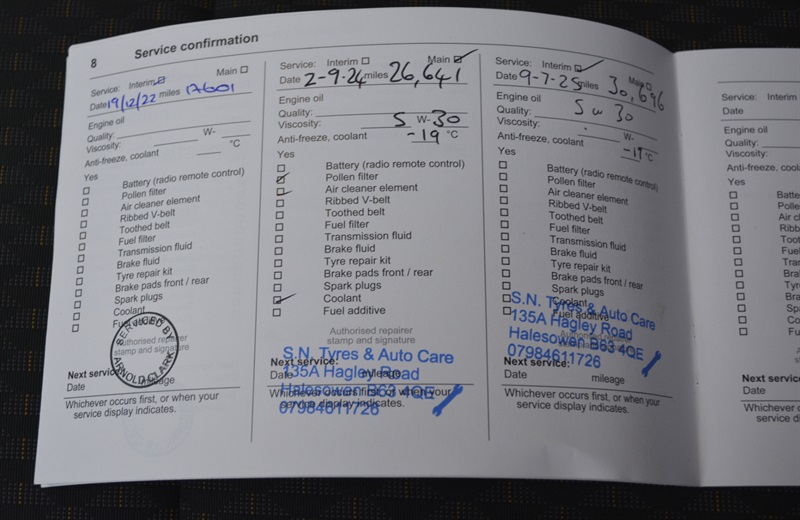 8 Service confirmation
Service: Interim ☑ Main ☐
Date 19/12/22 miles 17601
Engine oil
Quality:
Viscosity: W-
Anti-freeze, coolant °C
Yes
☐ Battery (radio remote control)
☐ Pollen filter
☐ Air cleaner element
☐ Ribbed V-belt
☐ Toothed belt
☐ Fuel filter
☐ Transmission fluid
☐ Brake fluid
☐ Tyre repair kit
☐ Brake pads front / rear
☐ Spark plugs
☐ Coolant
☐ Fuel additive
SERVICED BY
ARNOLD CLARK
Authorised repairer
stamp and signature
Next service:
Date mileage
Whichever occurs first, or when your
service display indicates.
Service: Interim ☐ Main ☑
Date 2-9-24 miles 26,641
Engine oil
Quality:
Viscosity: 5 W- 30
Anti-freeze, coolant -19 °C
Yes
☐ Battery (radio remote control)
☑ Pollen filter
☑ Air cleaner element
☐ Ribbed V-belt
☐ Toothed belt
☐ Fuel filter
☐ Transmission fluid
☐ Brake fluid
☐ Tyre repair kit
☐ Brake pads front / rear
☐ Spark plugs
☑ Coolant
☐ Fuel additive
Authorised repairer
stamp and signature
S.N. Tyres & Auto Care
135A Hagley Road
Halesowen B63 4QE
07984611726
Next service:
Date mileage
Whichever occurs first, or when your
service display indicates.
Service: Interim ☑ Main ☐
Date 9-7-25 miles 30,696
Engine oil
Quality: 5 w 30
Viscosity: W-
Anti-freeze, coolant -19 °C
Yes
☐ Battery (radio remote control)
☐ Pollen filter
☐ Air cleaner element
☐ Ribbed V-belt
☐ Toothed belt
☐ Fuel filter
☐ Transmission fluid
☐ Brake fluid
☐ Tyre repair kit
☐ Brake pads front / rear
☐ Spark plugs
☐ Coolant
☐ Fuel additive
S.N. Tyres & Auto Care
135A Hagley Road
Halesowen B63 4QE
07984611726
Next service:
Date mileage
Whichever occurs first, or when your
service display indicates.
Service: Interim
Date
Engine oil
Quality:
Viscosity:
Anti-freeze, coolant
Yes
Next service:
Date
Whichever occurs
service